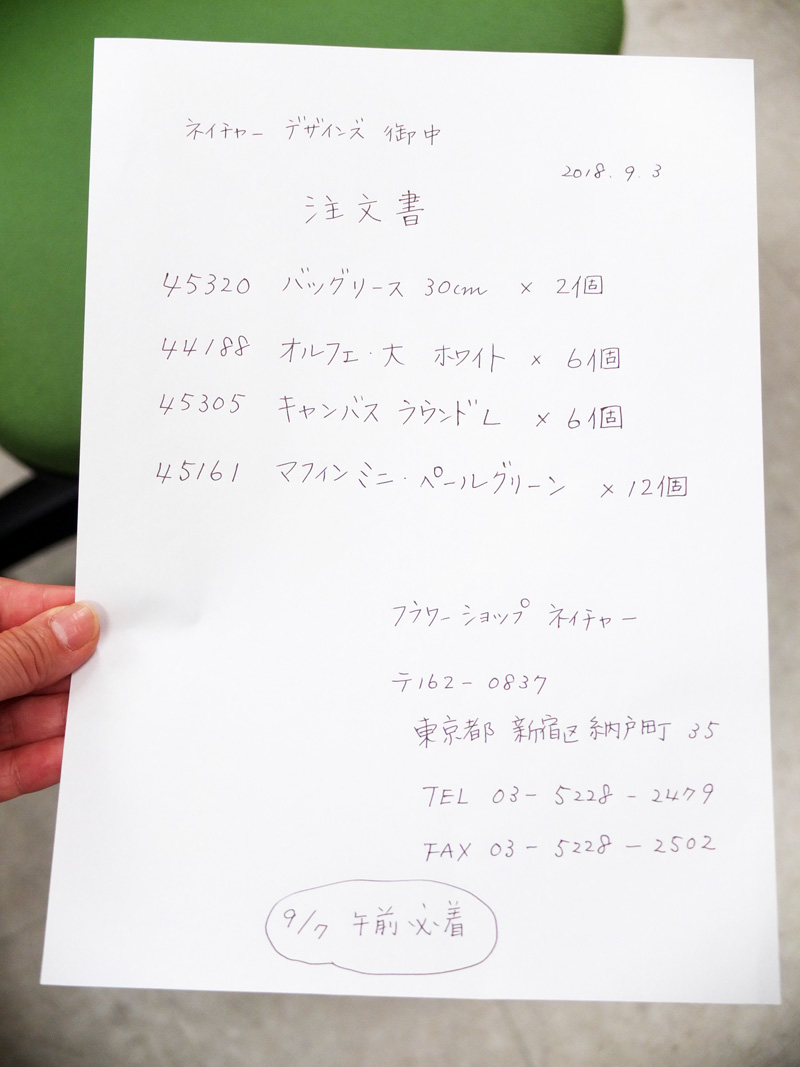 ネイチャー デザインズ 御中
2018. 9. 3
注文書
45320 バッグリース 30cm × 2個
44188 オルフェ・大 ホワイト × 6個
45305 キャンバス ラウンドL × 6個
45161 マフィンミニ・ペールグリーン × 12個
フラワーショップ ネイチャー
〒162-0837
東京都 新宿区 納戸町 35
TEL 03-5228-2479
FAX 03-5228-2502
9/7 午前必着